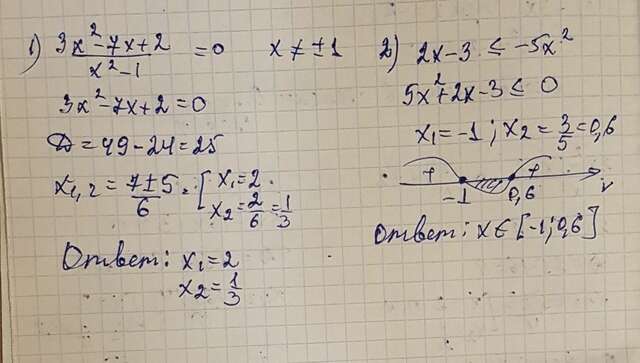 1) (3x²-7x+2)/(x²-1) = 0   x ≠ ±1
3x²-7x+2=0
D = 49-24=25
x₁,₂ = (7±5)/6 = [x₁=2
x₂ = 2/6 = 1/3
Ответ: x₁=2
x₂ = 1/3
2) 2x-3 ≤ -5x²
5x²+2x-3 ≤ 0
x₁=-1; x₂ = 3/5 = 0,6
+ +
-1 0,6
Ответ: x∈[-1;0,6]